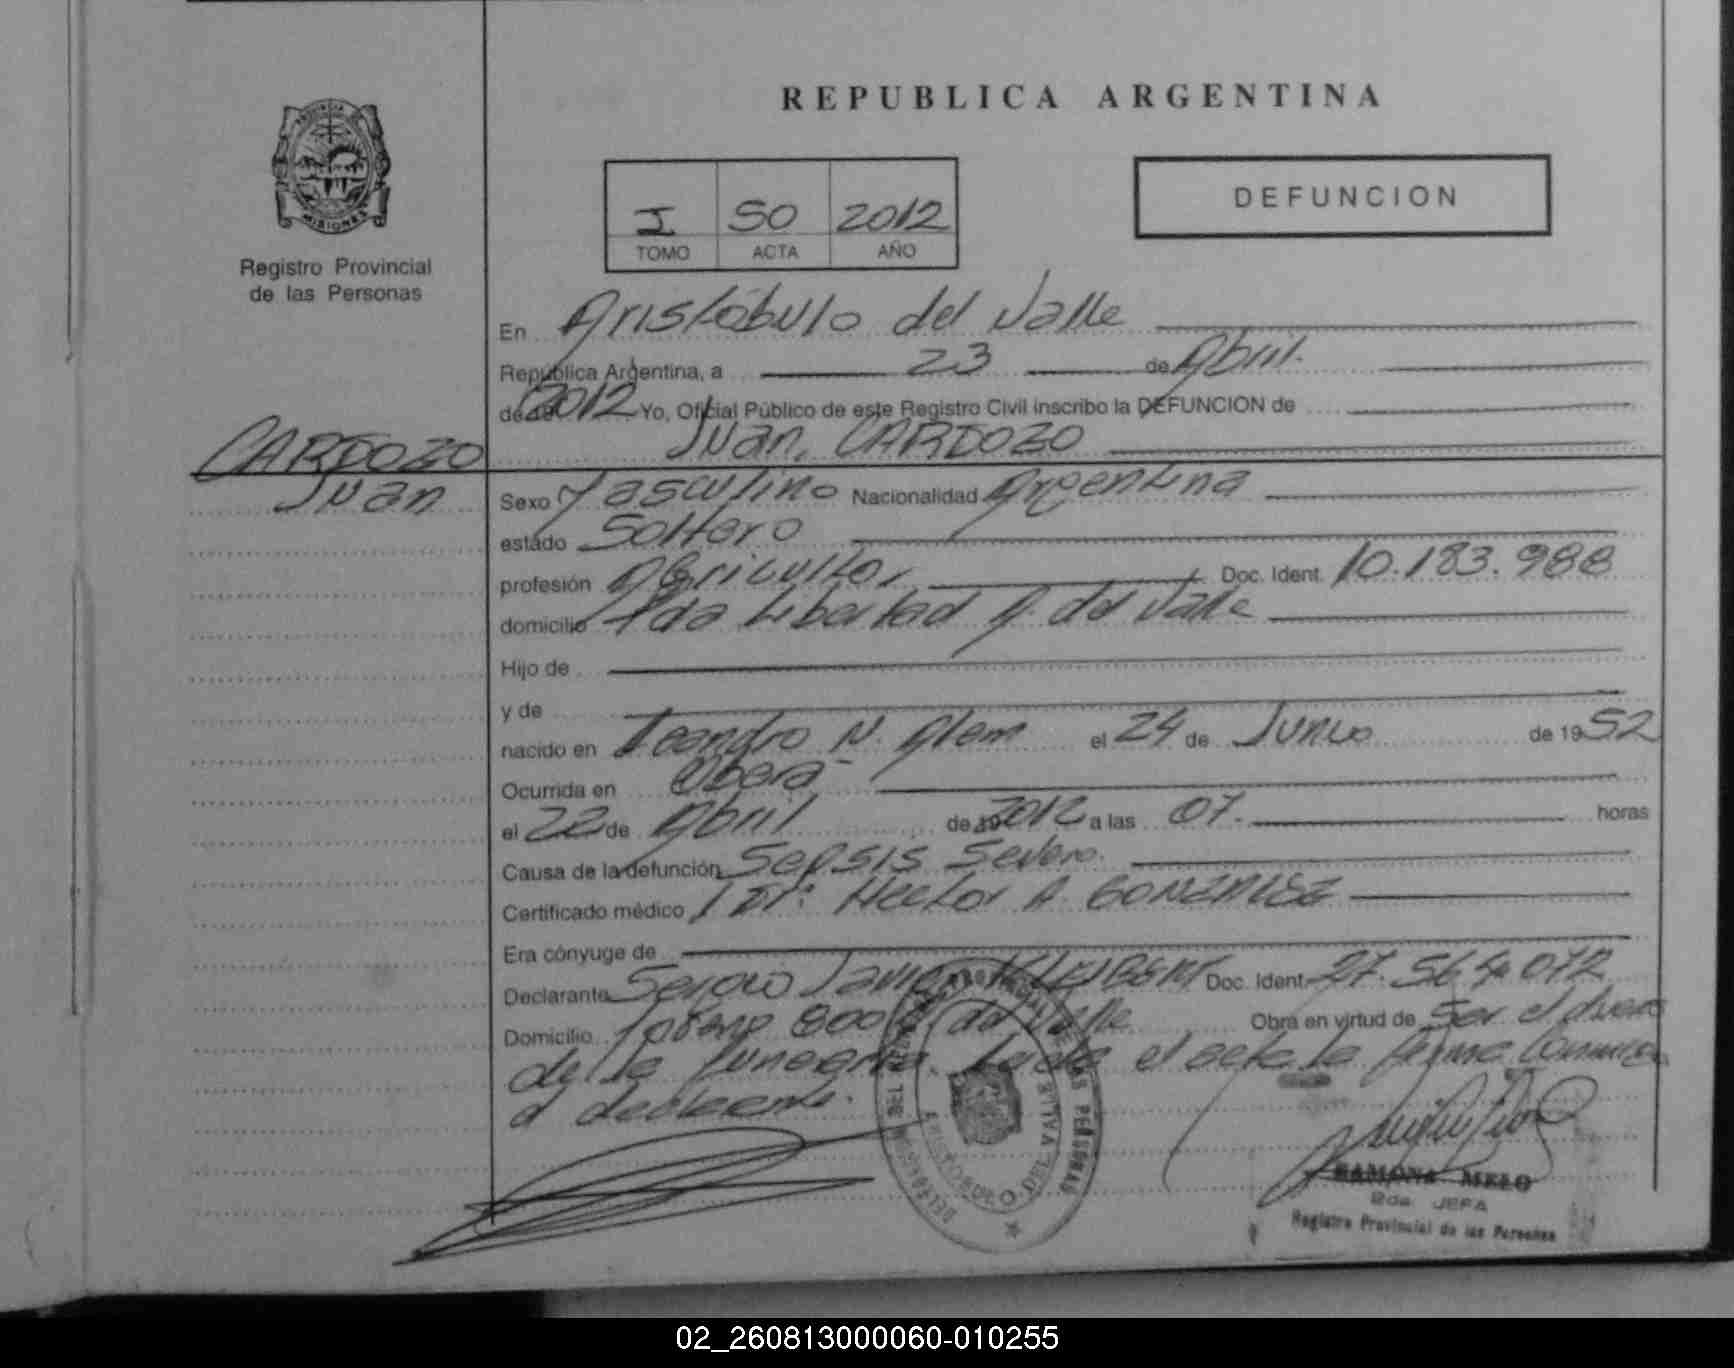 REPUBLICA ARGENTINA
PROVINCIA DE MISIONES
Registro Provincial
de las Personas
I 50 2012
TOMO ACTA AÑO
DEFUNCION
En Aristóbulo del Valle
República Argentina, a 23 de Abril.
de 19 2012 Yo, Oficial Público de este Registro Civil inscribo la DEFUNCION de
Juan, CARDOZO
CARDOZO
Juan
Sexo Masculino Nacionalidad Argentina
estado Soltero
profesión Agricultor Doc. Ident. 10.183.988
domicilio Pda Libertad A. del Valle
Hijo de
y de
nacido en Leandro N. Alem el 24 de Junio de 1952
Ocurrida en Oberá
el 22 de Abril de 19 2012 a las 07. horas
Causa de la defunción Sepsis Severa.
Certificado médico Dr. Hector A. GONZALEZ
Era cónyuge de
Declarante Sergio Javier Doc. Ident. 27.564.072
Domicilio 800 A. del Valle Obra en virtud de Ser el dueño
de la funeraria. Leída el acta la firma Conmigo
el declarante.
REGISTRO PROVINCIAL DE LAS PERSONAS
ARISTOBULO DEL VALLE
RAMONA MELO
2da JEFA
Registro Provincial de las Personas
02_260813000060-010255